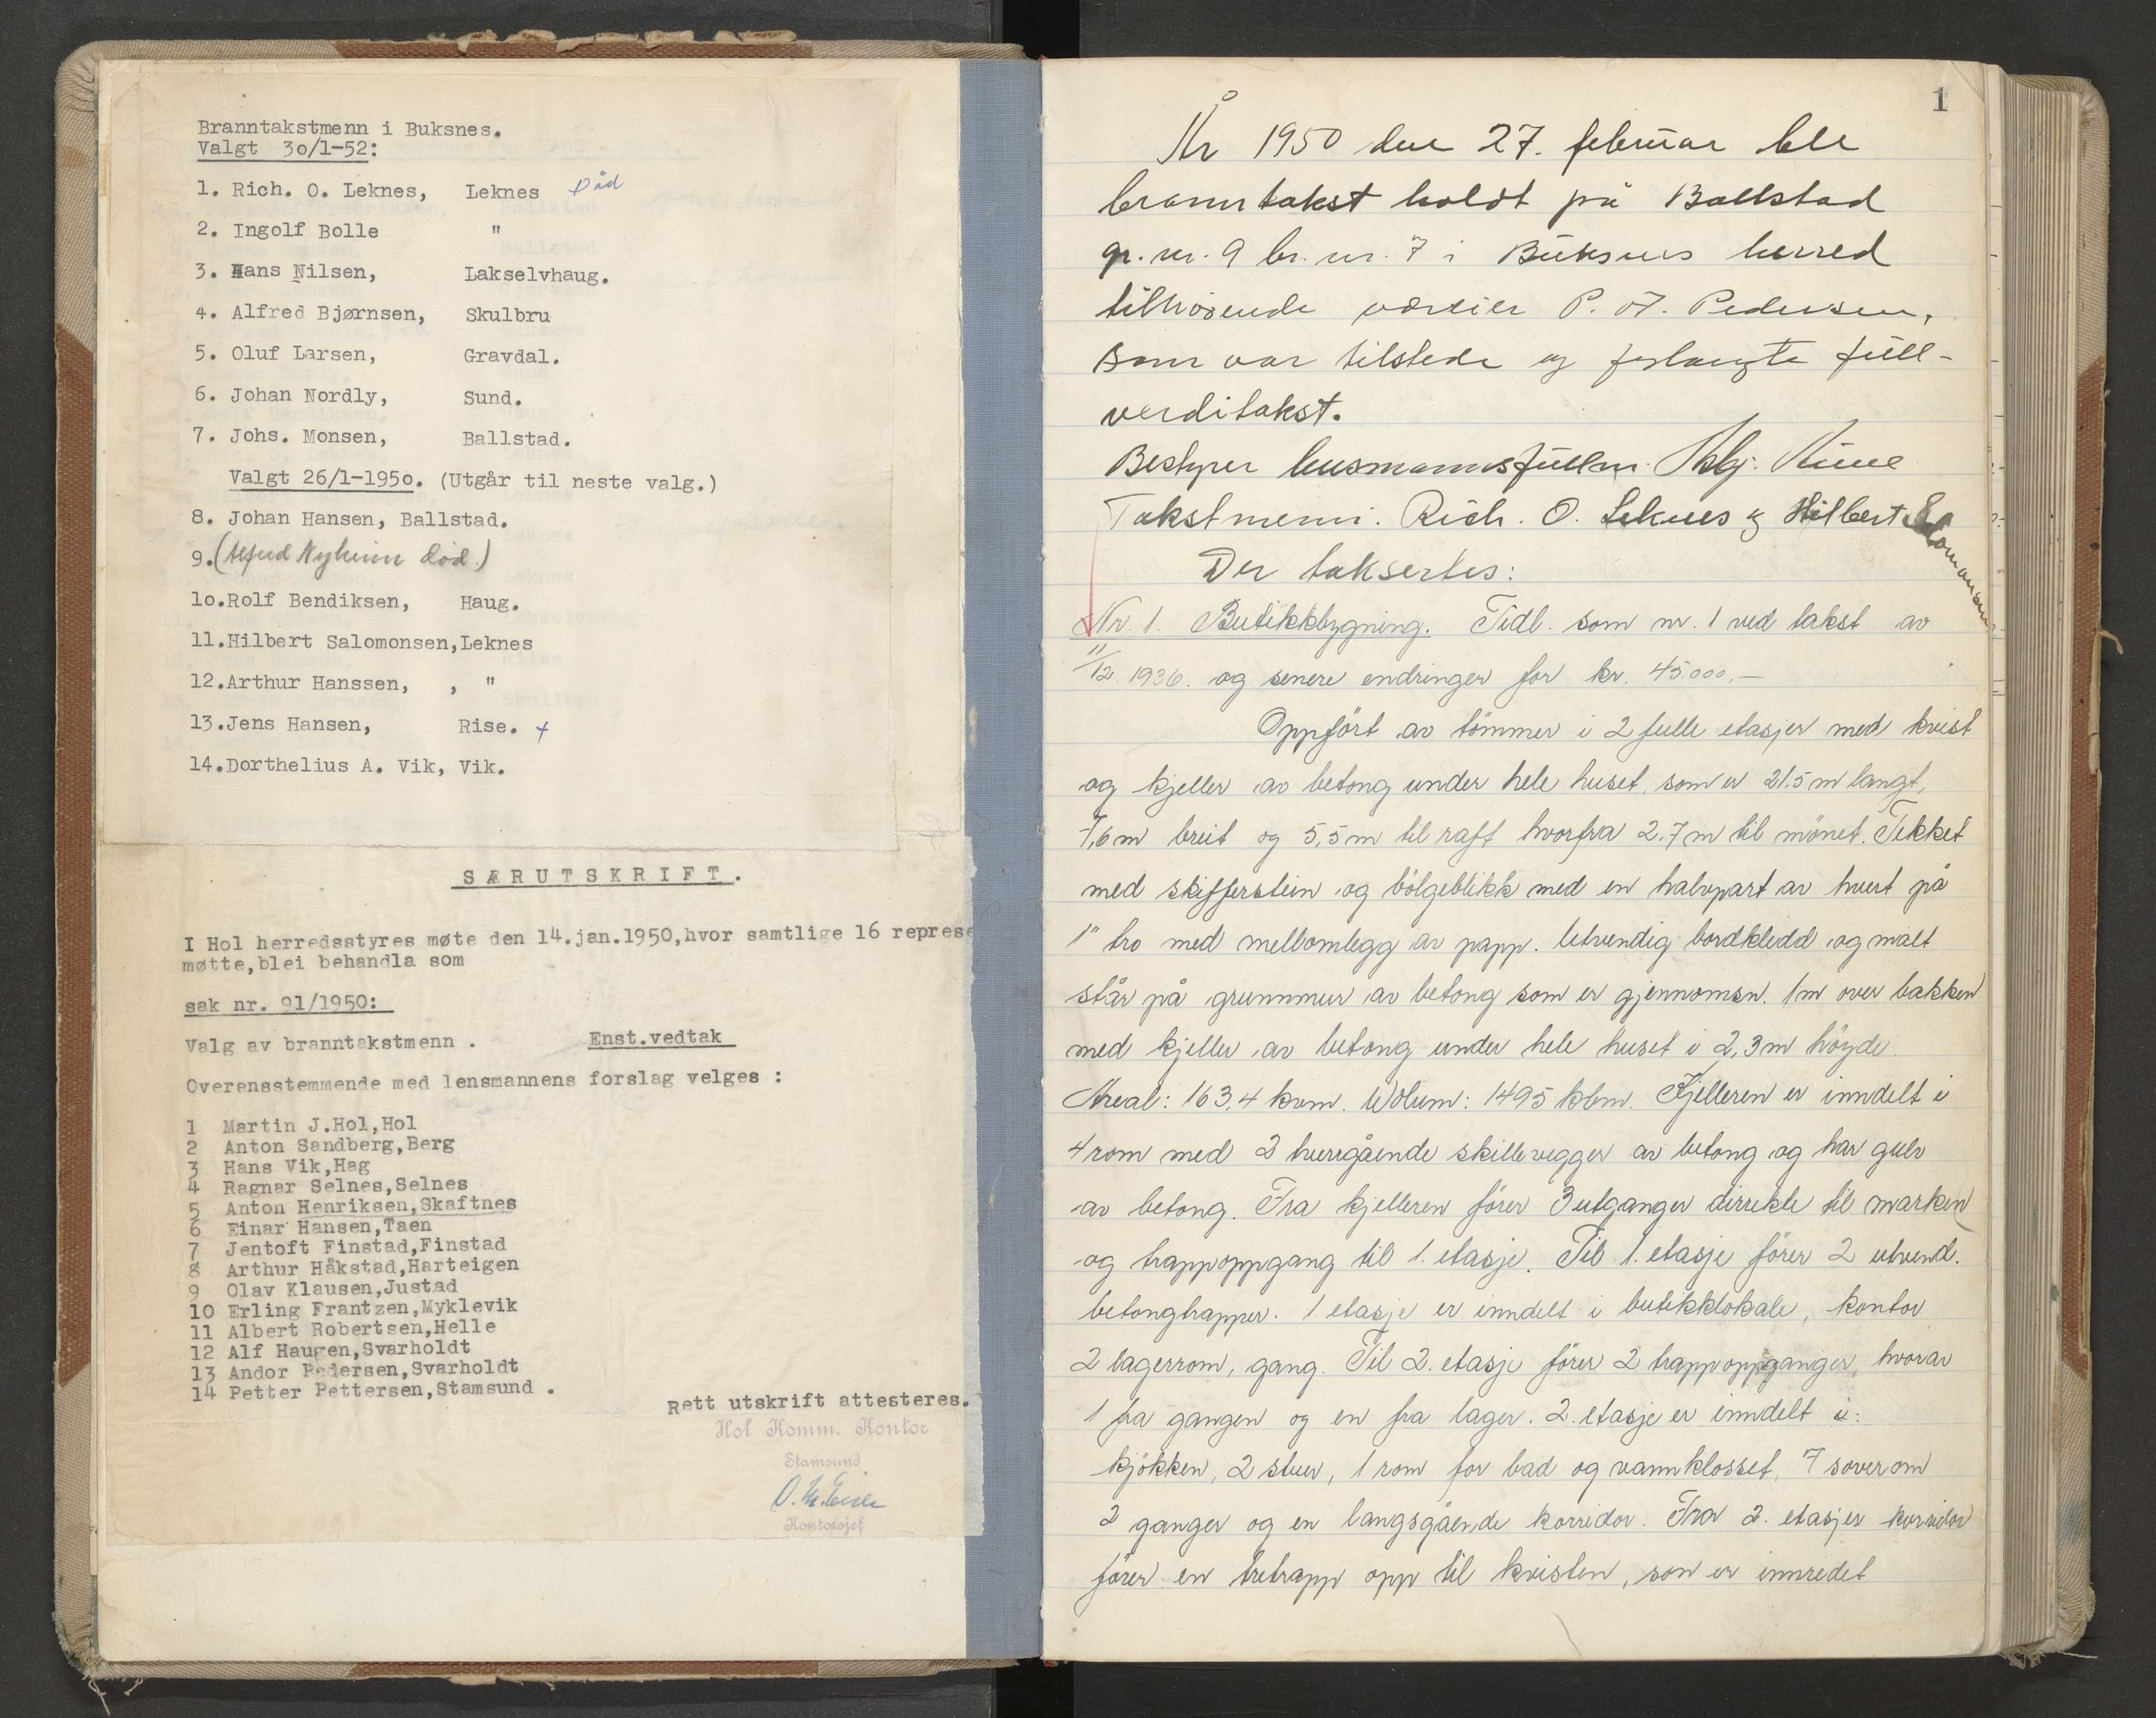 Branntakstmenn i Buksnes.
Valgt 3o/1-52:
1. Rich. O. Leknes, Leknes Død
2. Ingolf Bolle "
3. Hans Nilsen, Lakselvhaug.
4. Alfred Bjørnsen, Skulbru
5. Oluf Larsen, Gravdal.
6. Johan Nordly, Sund.
7. Johs. Monsen, Ballstad.
Valgt 26/1-195o. (Utgår til neste valg.)
8. Johan Hansen, Ballstad.
9. (Alfred Nyheim død.)
1o. Rolf Bendiksen, Haug.
11. Hilbert Salomonsen, Leknes
12. Arthur Hanssen, , "
13. Jens Hansen, Rise. +
14. Dorthelius A. Vik, Vik.
SÆRUTSKRIFT.
I Hol herredsstyres møte den 14.jan.1950,hvor samtlige 16 represe
møtte,blei behandla som
sak nr. 91/1950:
Valg av branntakstmenn . Enst.vedtak
Overensstemmende med lensmannens forslag velges :
1 Martin J.Hol,Hol
2 Anton Sandberg,Berg
3 Hans Vik,Hag
4 Ragnar Selnes,Selnes
5 Anton Henriksen,Skaftnes
6 Einar Hansen,Taen
7 Jentoft Finstad,Finstad
8 Arthur Håkstad,Harteigen
9 Olav Klausen,Justad
10 Erling Frantzen,Myklevik
11 Albert Robertsen,Helle
12 Alf Haugen,Svarholdt
13 Andor Pedersen,Svarholdt
14 Petter Pettersen,Stamsund .
Rett utskrift attesteres.
Hol Komm. Kontor
Stamsund
Kontorsjef
1
År 1950 den 27. februar ble
branntakst holdt på Ballstad
gr. nr. 9 br. nr. 7 i Buksnes herred
tilhørende væreier P. A. Pedersen,
som var tilstede og forlangte full-
verditakst.
Bestyrer lensmannsfullm.
Takstmenn. Rich. O. Leknes og Hilbert Salomonsen
Der taksertes:
Nr. 1. Butikkbygning. Tidl. som nr. 1 ved takst av
11/12. 1936. og senere endringer for kr. 45.000,-
Oppført av tömmer i 2 fulle etasjer med kvist
og kjeller av betong under hele huset, som er 21.5 m langt,
7,6 m breit og 5,5 m til raft hvorfra 2,7 m til mönet. Tekket
med skifferstein og bölgeblikk med en halvpart av hvert på
1" tro med mellomlegg av papp. Utvendig bordkledd og malt
står på grunnmur av betong som er gjennomsn. 1 m over bakken
med kjeller av betong under hele huset i 2,3 m höyde.
Areal: 163,4 kvm. Wolum: 1495 kbm. Kjelleren er inndelt i
4 rom med 2 tverrgående skillevegger av betong og har gulv
av betong. Fra kjelleren förer 3 utganger dirrekte til marken
og trappoppgang til 1. etasje. Til 1. etasje förer 2 utvend.
betongtrapper. 1 etasje er inndelt i butikklokale, kontor
2 lagerrom, gang. Til 2. etasje förer 2 trappoppganger, hvorav
1 fra gangen og en fra lager. 2. etasje er inndelt i:
kjökken, 2 stuer, 1 rom for bad og vannklosset, 7 soverom
2 ganger og en langsgående korridor. Fra 2. etasjes korridor
förer en tretrapp opp til kvisten, som er innredet